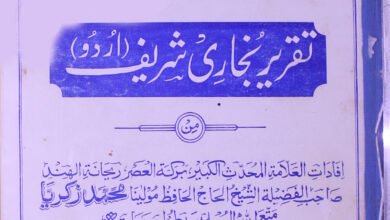 تقریر بُخاری شریف (اردو)
مِن
افادات العلامۃ المحدث الکبیر، برکۃ العصر ریحانۃ الھند
صاحب الفضیلۃ الشیخ الحاج الحافظ مولینا محمد زکریا